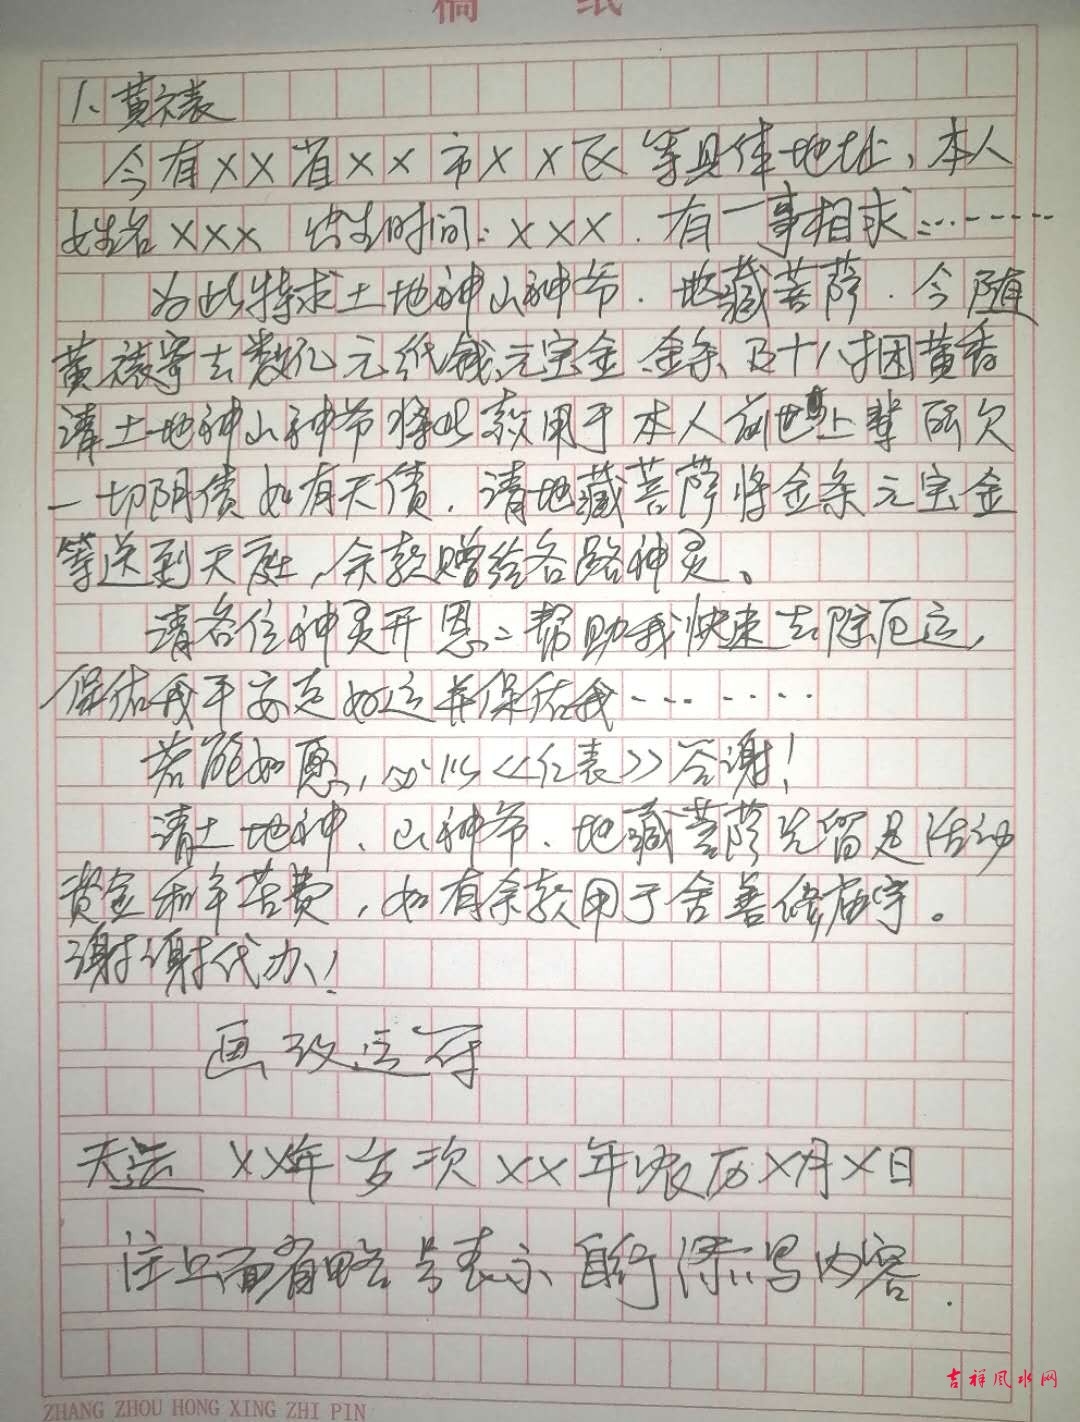 稿 纸
1、黄表
今有XX省XX市XX区等具体地址,本人
姓名XXX 出生时间:XXX.有一事相求:…------
为此特求土地神山神爷.地藏菩萨.今随
黄裱寄去数亿元纸钱、元宝金、金条、及十八捆黄香
请土地神山神爷将此款用于本人前世上辈所欠
一切阴债如有天债.请地藏菩萨将金条元宝金
等送到天庭,余款赠给各路神灵。
请各位神灵开恩:帮助我快速去除厄运,
保佑我平安走好运并保佑我--- - ----
若能如愿,必以《红表》答谢!
请土地神、山神爷、地藏菩萨先留足活动
资金和辛苦费,如有余款用于舍善修庙宇。
谢谢代办!
画改运符
天运 XX年岁次XX年农历X月X日
注上面省略号表示自行添写内容.
吉祥风水网
ZHANG ZHOU HONG XING ZHI PIN